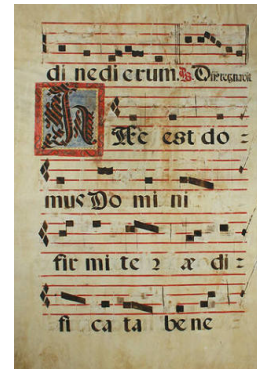 di nedicrum. ℟. Dñs regnavit
HAec est do=
mus Do mi ni
fir mi te ꝛ æ di=
fi ca ta be ne